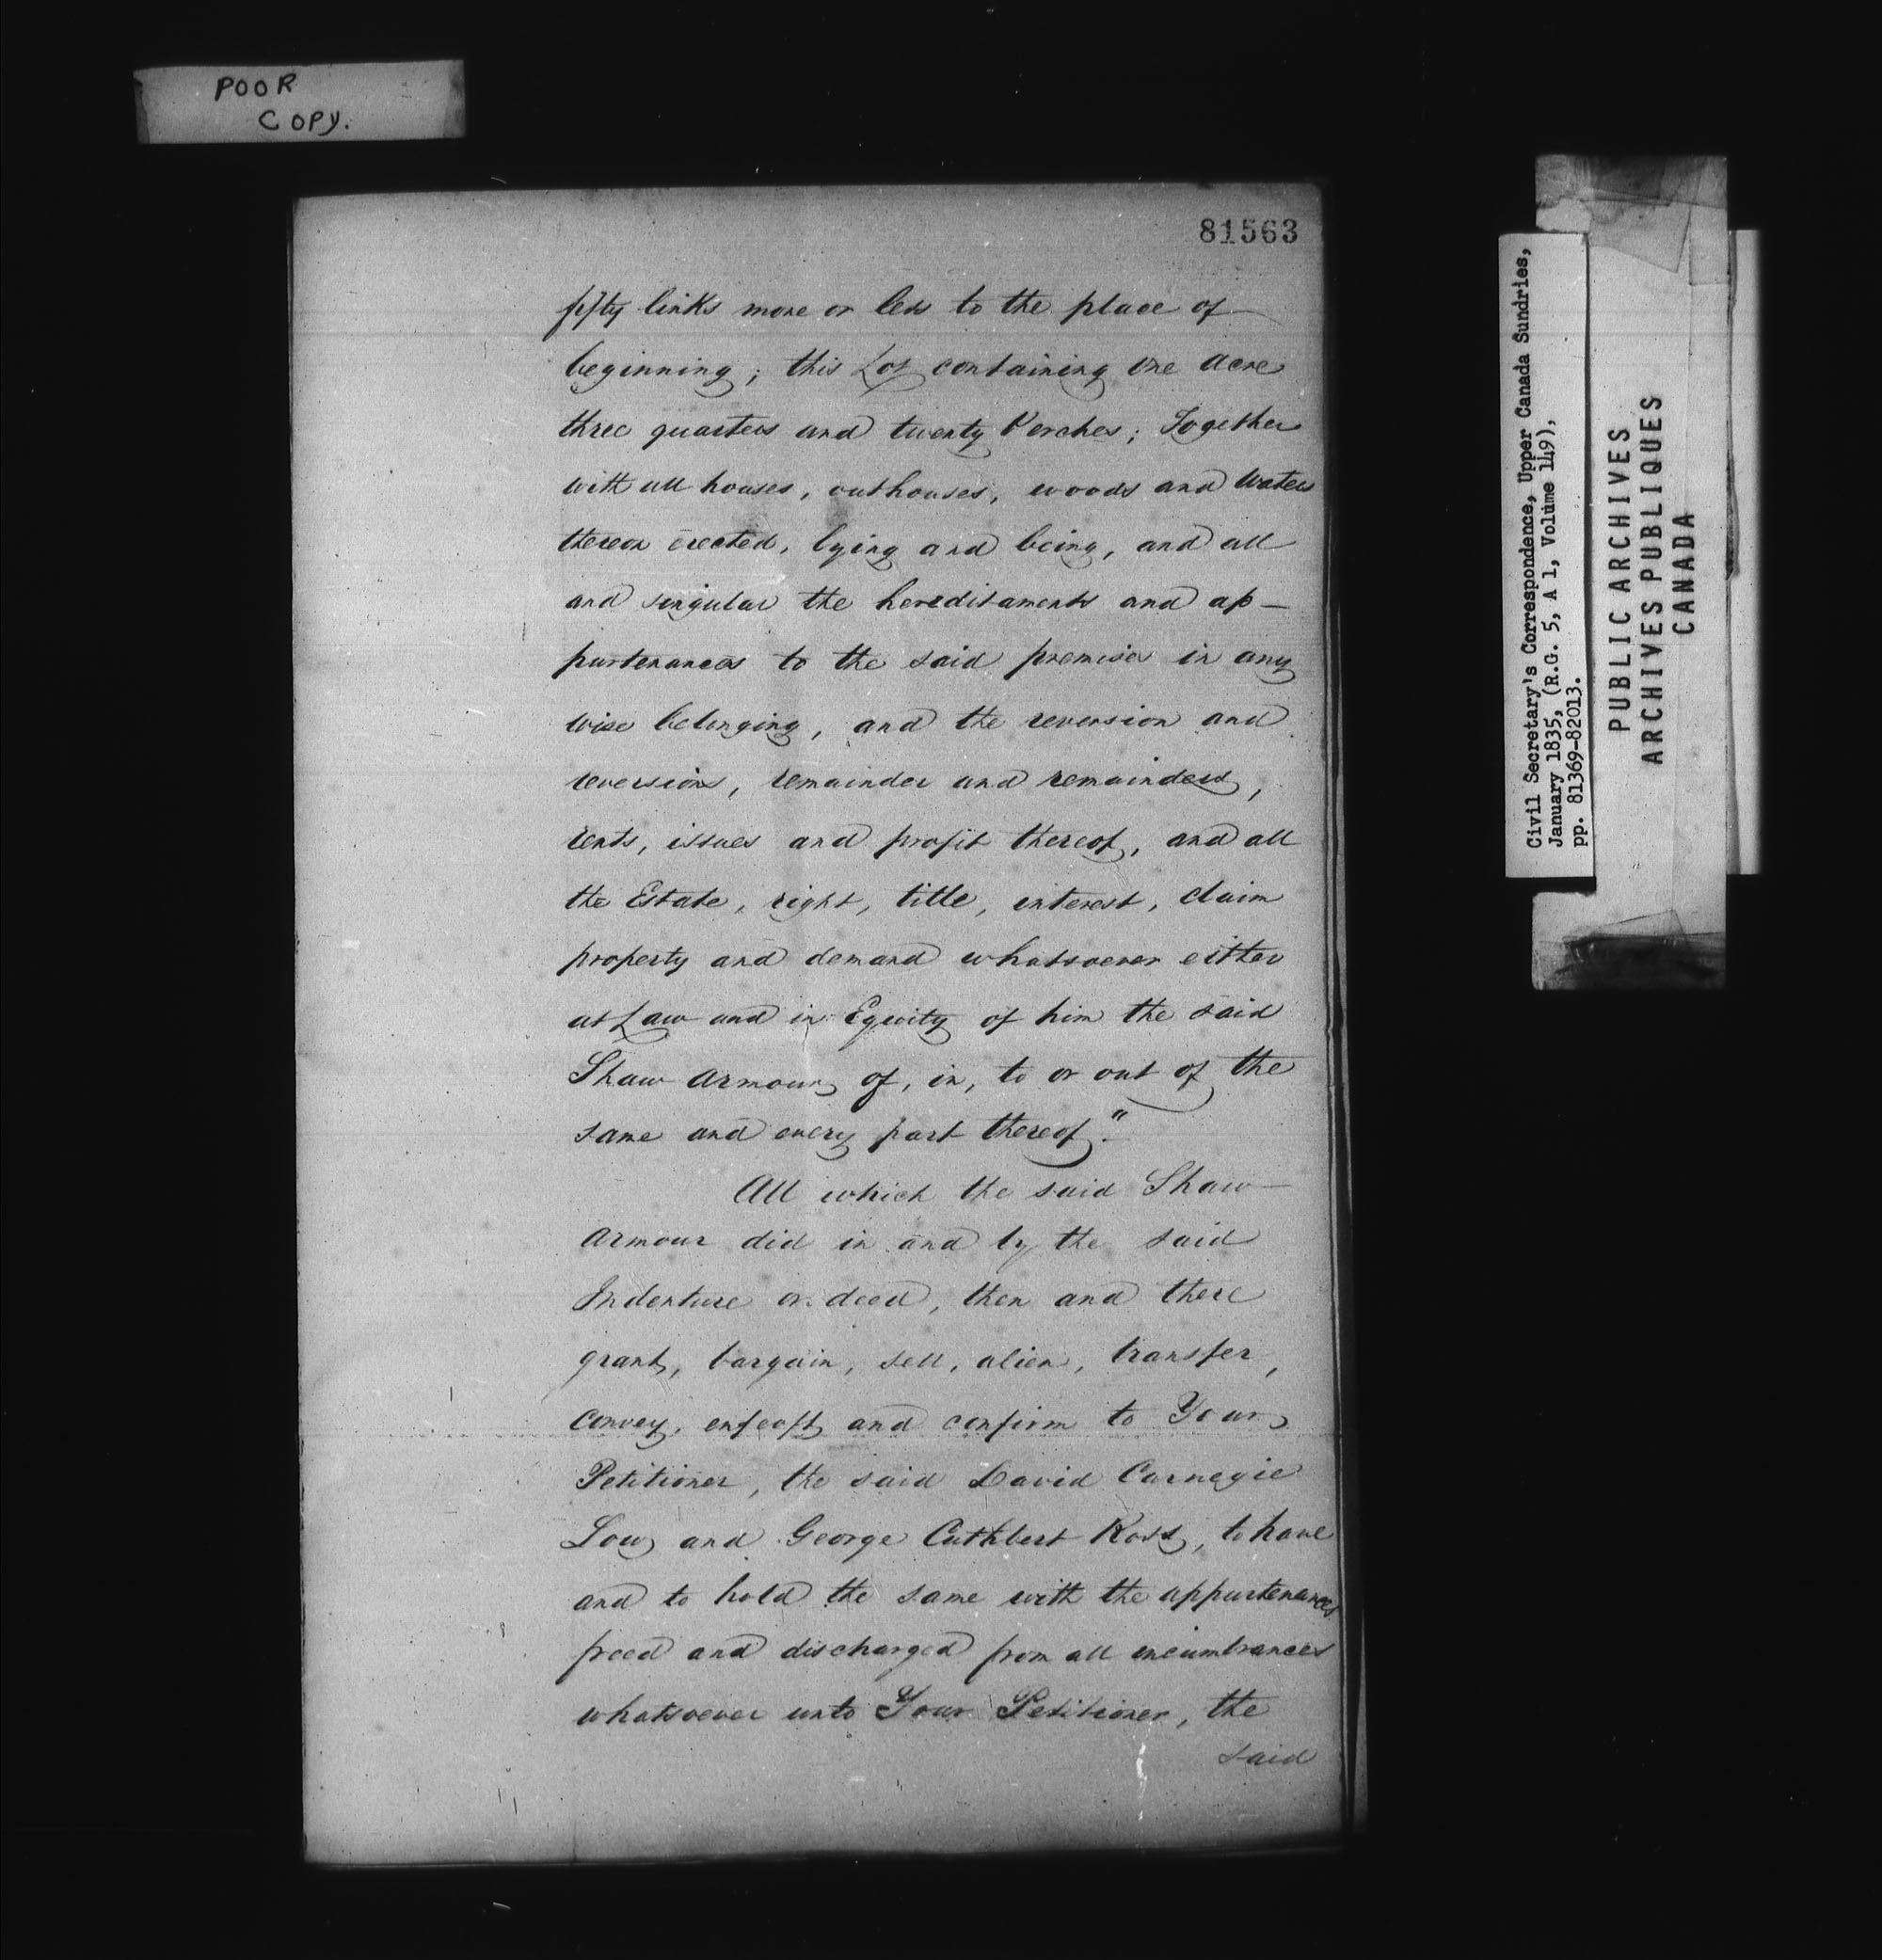 POOR
COPY.
81563
fifty links more or less to the place of
beginning; this Lot containing one acre
three quarters and twenty Perches; Together
with all houses, outhouses, woods and Waters
thereon erected, lying and being, and all
and singular the hereditaments and ap-
purtenances to the said premises in any
wise belonging, and the reversion and
reversions, remainder and remainders,
rents, issues and profit thereof, and all
the Estate, right, title, interest, claim
property and demand whatsoever either
at Law and in Equity of him the said
Shaw Armour of, in, to or out of the
same and every part thereof."
All which the said Shaw
Armour did in and by the said
Indenture or deed, then and there
grant, bargain, sell, alien, transfer,
convey, enfeoff and confirm to Your
Petitioner, the said David Carnegie
Low and George Cuthbert Ross, to have
and to hold the same with the appurtenances
freed and discharged from all incumbrances
whatsoever unto Your Petitioner, the
said
Civil Secretary's Correspondence, Upper Canada Sundries,
January 1835, (R.G. 5, A 1, Volume 149),
pp. 81369-82013.
PUBLIC ARCHIVES
ARCHIVES PUBLIQUES
CANADA